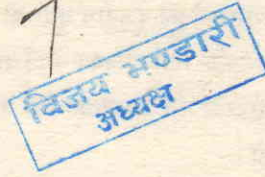 विजय भण्डारी
अध्यक्ष